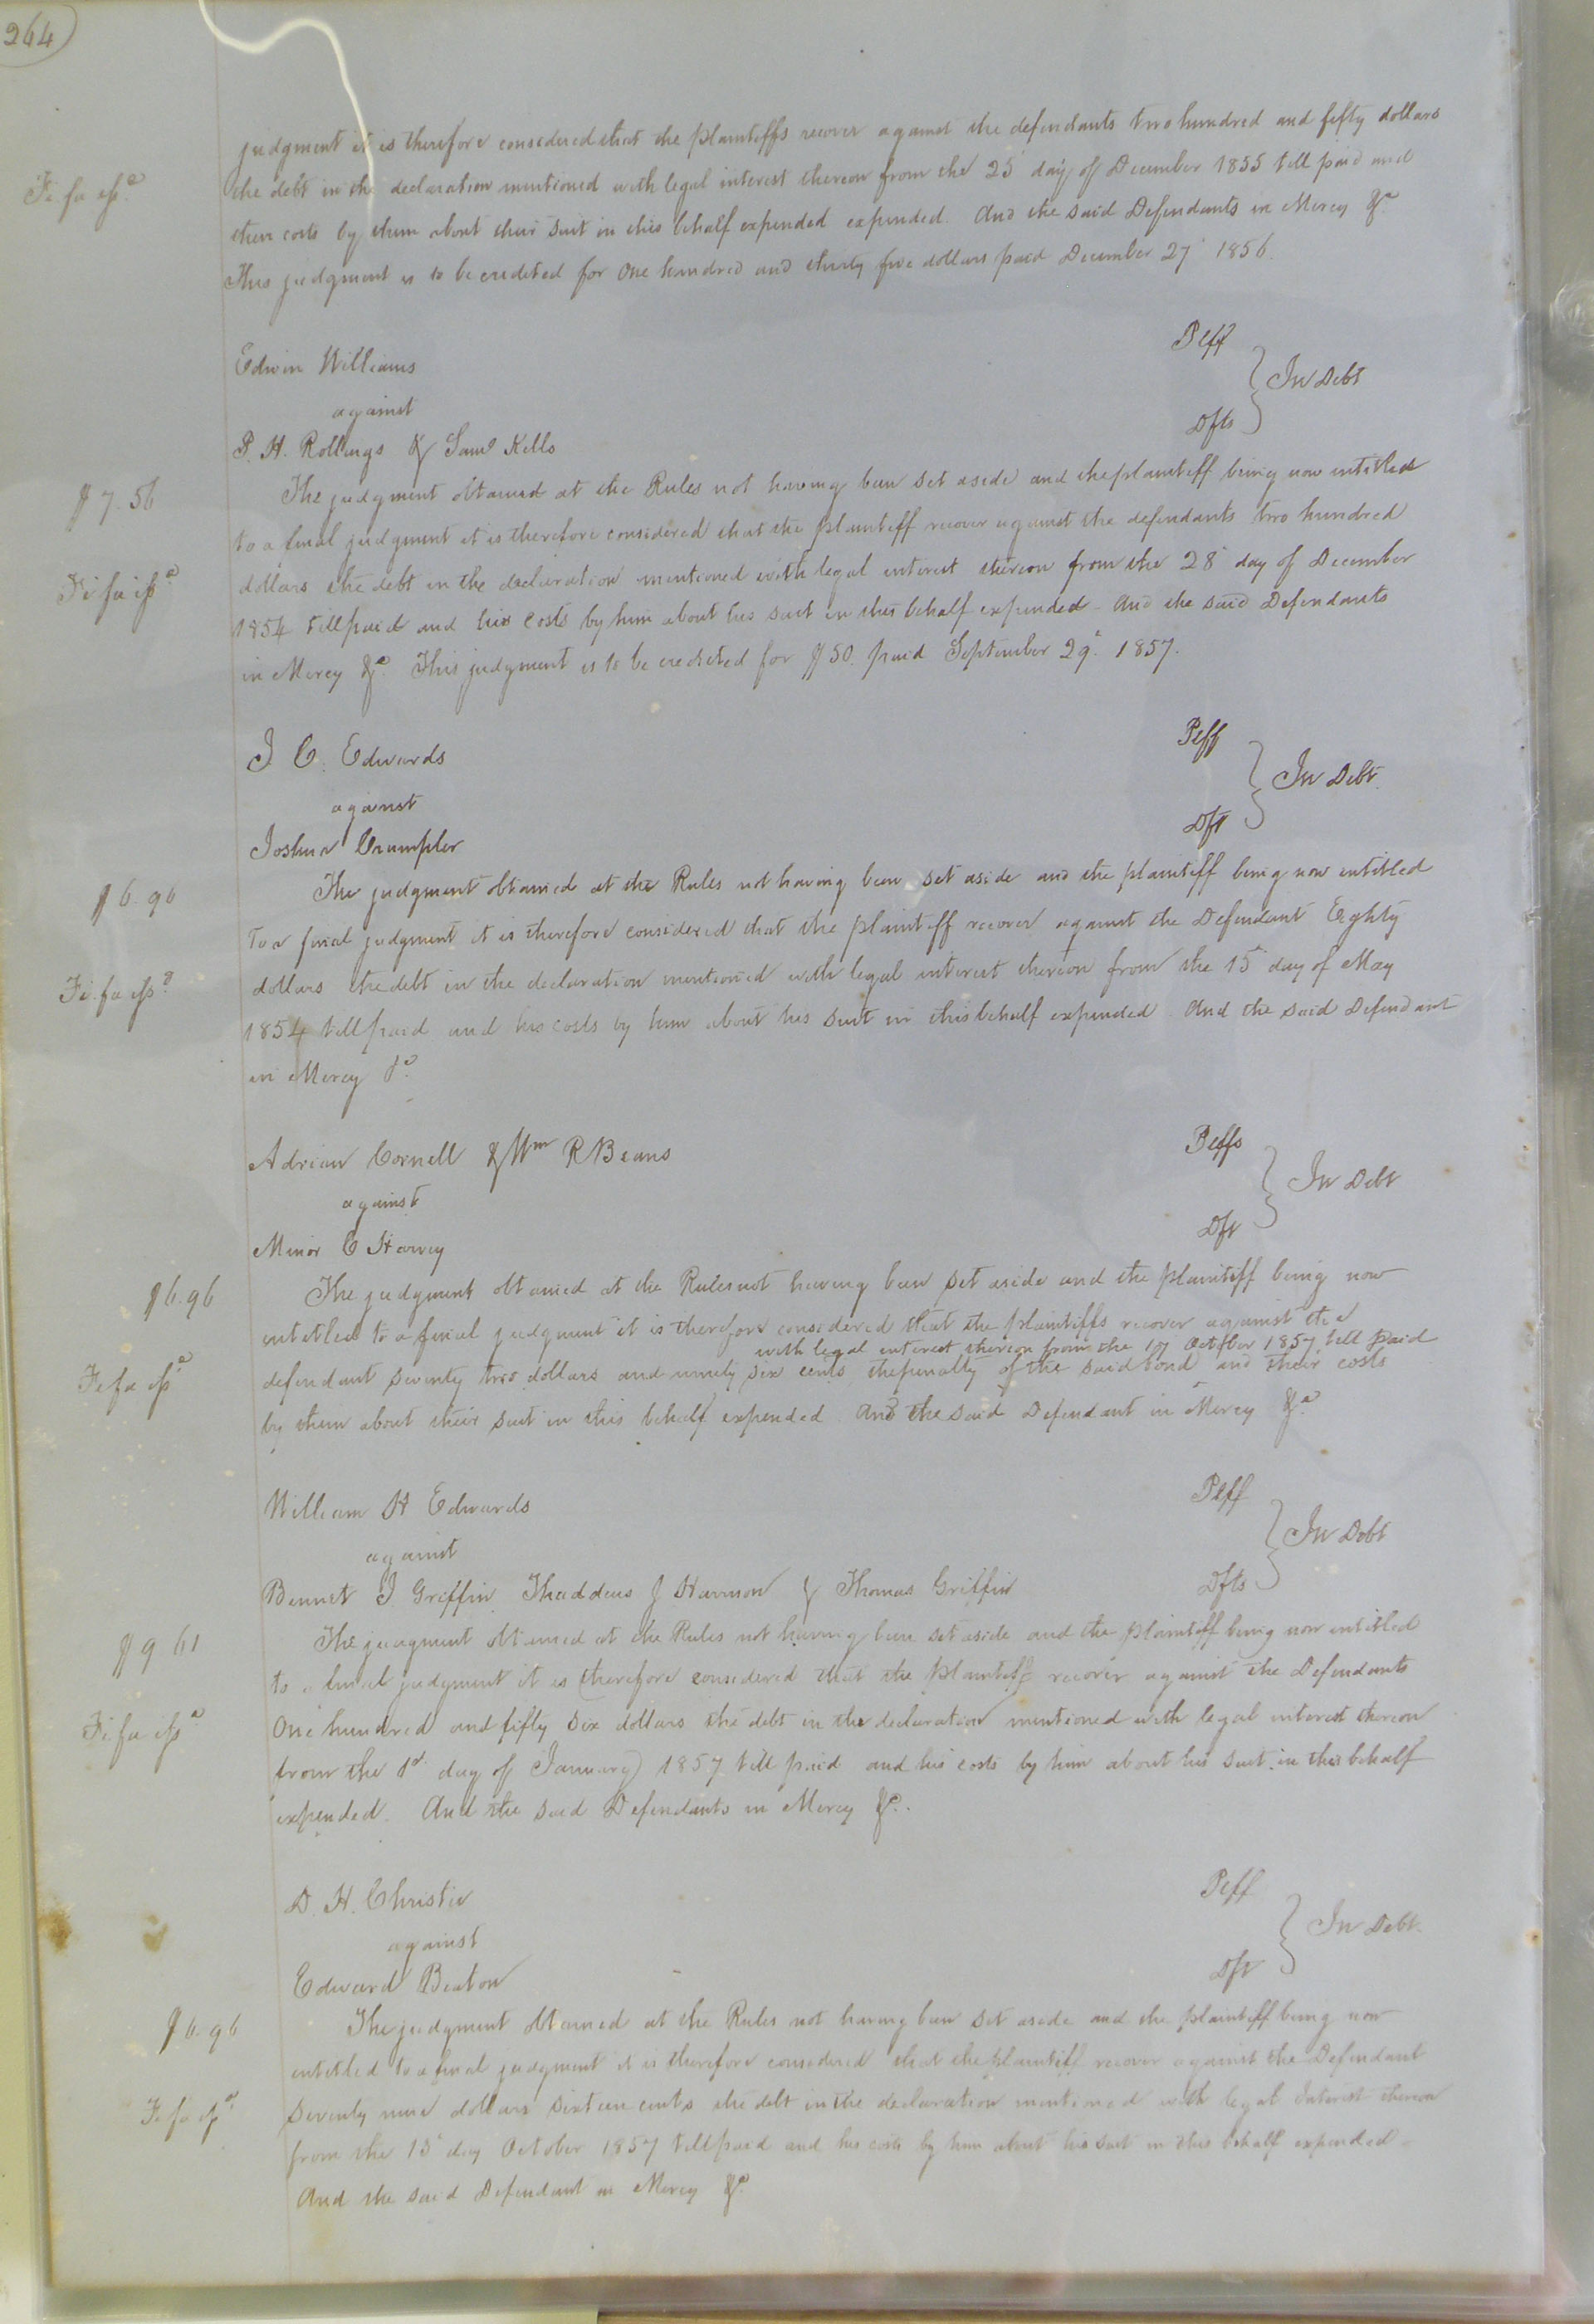 264
judgment it is therefore considered that the plaintiffs recover against the defendants two hundred and fifty dollars
the debt in the declaration mentioned with legal interest thereon from the 25 day of December 1855 till paid and
Fi. fa
their costs by them about their suit in this behalf expended expended. And the said Defendants in Mercy &c.
This judgment is to be credited for One hundred and thirty five dollars paid December 27 1856.
Edwin Williams Plff
against In Debt
P. H. Rollings & Saml Kello Dfts
$7.56
The judgment obtained at the Rules not having been set aside and the plaintiff being now intitled
to a final judgment it is therefore considered that the plaintiff recover against the defendants two hundred
Fi fa
dollars the debt in the declaration mentioned with legal interest thereon from the 28 day of December
1854 till paid and his costs by him about his suit in this behalf expended - And the said Defendants
in Mercy &c. This judgment is to be credited for $50. paid September 29. 1857.
J. C. Edwards Plff
against In Debt.
Joshua Crumpler Dft
$6.96
The judgment obtained at the Rules not having been set aside and the plaintiff being now entitled
To a final judgment it is therefore considered that the plaintiff recover against the Defendant Eighty
Fi. fa
dollars the debt in the declaration mentioned with legal interest thereon from the 15 day of May
1854 till paid and his costs by him about his suit in this behalf expended. And the said Defendant
in Mercy &c.
Adrian Cornell & Wm R Beans Plffs
against In Debt
Minor C Harvey Dft
$6.96
The judgment obtained at the Rules not having been set aside and the plaintiff being now
entitled to a final judgment it is therefore considered that the plaintiffs recover against the
with legal interest thereon from the 17 October 1857 till paid
Fi fa
defendant seventy two dollars and ninety six cents the penalty of the said bond and their costs
by them about their suit in this behalf expended And the said Defendant in Mercy &c
William H Edwards Plff
against In Debt
Bennet J. Griffin Thaddeus J Harrison & Thomas Griffin Dfts
$9 61
The judgment obtained at the Rules not having been set aside and the plaintiff being now intitled
to a final judgment it is therefore considered that the plaintiff recover against the Defendants
Fi. fa
One hundred and fifty six dollars the debt in the declaration mentioned with legal interest thereon
from the 1st day of January 1857 till paid and his costs by him about his suit in this behalf
expended. And the said Defendants in Mercy &c.
D. H. Christie Plff
against In Debt.
Edward Beaton Dft
$6.96
The judgment obtained at the Rules not having been set aside and the plaintiff being now
entitled to a final judgment it is therefore considered that the plaintiff recover against the Defendant
Fi fa
Seventy nine dollars sixteen cents the debt in the declaration mentioned with legal Interest thereon
from the 15 day October 1857 till paid and his costs by him about his suit in this behalf expended -
And the said Defendant in Mercy &c